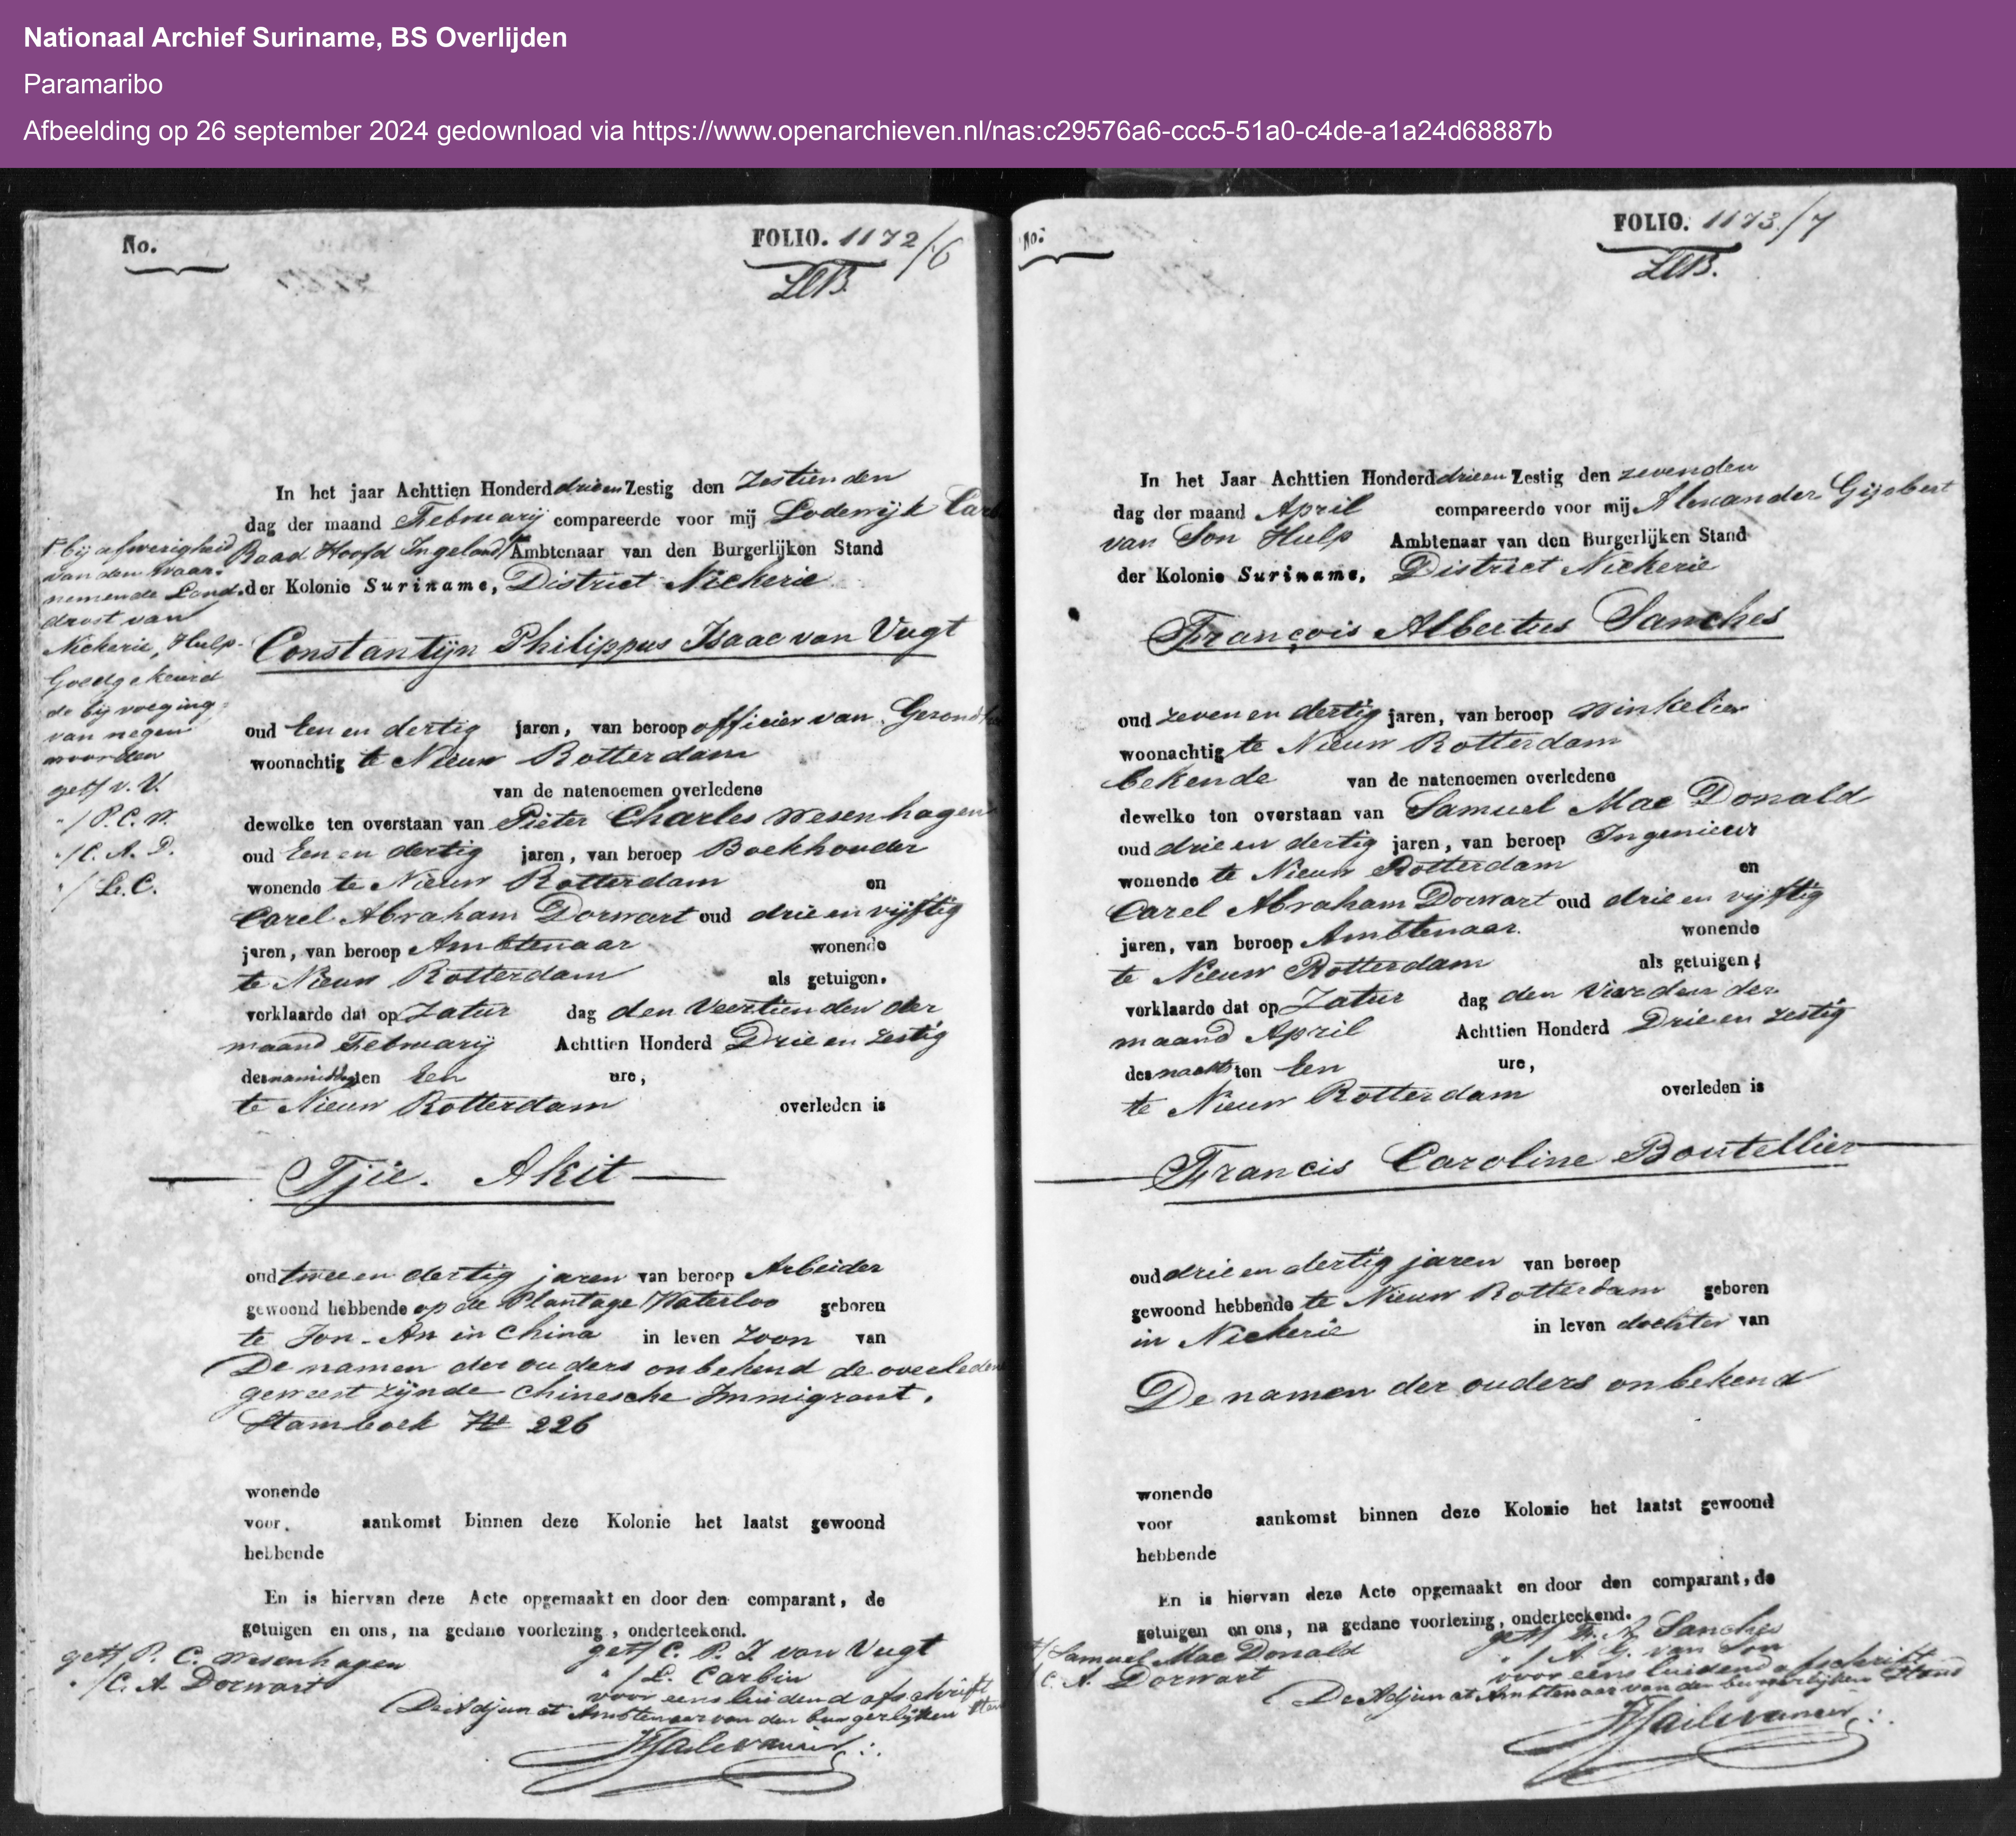 Nationaal Archief Suriname, BS Overlijden
Paramaribo
Afbeelding op 26 september 2024 gedownload via https://www.openarchieven.nl/nas:c29576a6-ccc5-51a0-c4de-a1a24d68887b
No.
FOLIO. 1172/6
In het jaar Achttien Honderd drie en Zestig den Zestienden
dag der maand Februarij compareerde voor mij Lodewijk Carb
Raad Hoofd Ingeland Ambtenaar van den Burgerlijken Stand
der Kolonie Suriname, District Nickerie
Constantijn Philippus Isaac van Vugt
bij afwezigheid
van den waar-
nemende Land-
drost van
Nickerie, Hulp-
Goedgekeurd
de bijvoeging
van negen
woorden
get/ v. V.
"/ P. C. W.
"/ C. A. D.
"/ L. C.
oud Een en dertig jaren, van beroep officier van Gezondh
woonachtig te Nieuw Rotterdam
van de natenoemen overledene
dewelke ten overstaan van Pieter Charles Wesenhagen
oud Een en dertig jaren, van beroep Boekhouder
wonende te Nieuw Rotterdam en
Carel Abraham Dorwart oud drie en vijftig
jaren, van beroep Ambtenaar wonende
te Nieuw Rotterdam als getuigen.
verklaarde dat op Zatur dag den Veertienden der
maand Februarij Achttien Honderd Drie en zestig
des namiddags ten Een ure,
te Nieuw Rotterdam overleden is
Tjie. Akit
oud twee en dertig jaren van beroep Arbeider
gewoond hebbende op de Plantage Waterloo geboren
te Jon-An in China in leven Zoon van
De namen der ouders onbekend de overleden
geweest zijnde Chinesche Immigrant.
Stamboek No 226
wonende
voor. aankomst binnen deze Kolonie het laatst gewoond
hebbende
En is hiervan deze Acte opgemaakt en door den comparant, de
getuigen en ons, na gedane voorlezing, onderteekend.
get/ P. C. Wesenhagen get/ C. P. I. van Vugt
"/ C. A. Dorwart "/ L. Carbin
voor eensluidend afschrift
De Adjunct Ambtenaar van den burgerlijken Stan
No:
FOLIO. 1173/7
In het Jaar Achttien Honderd drie en Zestig den zevenden
dag der maand April compareerde voor mij Alexander Gijsbert
van Son Hulp Ambtenaar van den Burgerlijken Stand
der Kolonie Suriname, District Nickerie
François Albertus Sanches
oud zeven en dertig jaren, van beroep winkelier
woonachtig te Nieuw Rotterdam
bekende van de natenoemen overledene
dewelke ten overstaan van Samuel Mac Donald
oud drie en dertig jaren, van beroep Ingenieur
wonende te Nieuw Rotterdam en
Carel Abraham Dorwart oud drie en vijftig
jaren, van beroep Ambtenaar. wonende
te Nieuw Rotterdam als getuigen,
verklaarde dat op Zatur dag den Vierden der
maand April Achttien Honderd Drie en zestig
des nachts ten Een ure,
te Nieuw Rotterdam overleden is
Francis Caroline Boutellier
oud drie en dertig jaren van beroep
gewoond hebbende te Nieuw Rotterdam geboren
in Nickerie in leven dochter van
De namen der ouders onbekend
wonende
voor aankomst binnen deze Kolonie het laatst gewoond
hebbende
En is hiervan deze Acte opgemaakt en door den comparant, de
getuigen en ons, na gedane voorlezing, onderteekend.
Samuel Mac Donald get/ F. A. Sanches
C. A. Dorwart "/ A. G. van Son
voor eensluidend afschrift
De Adjunct Ambtenaar van den burgerlijken Stand